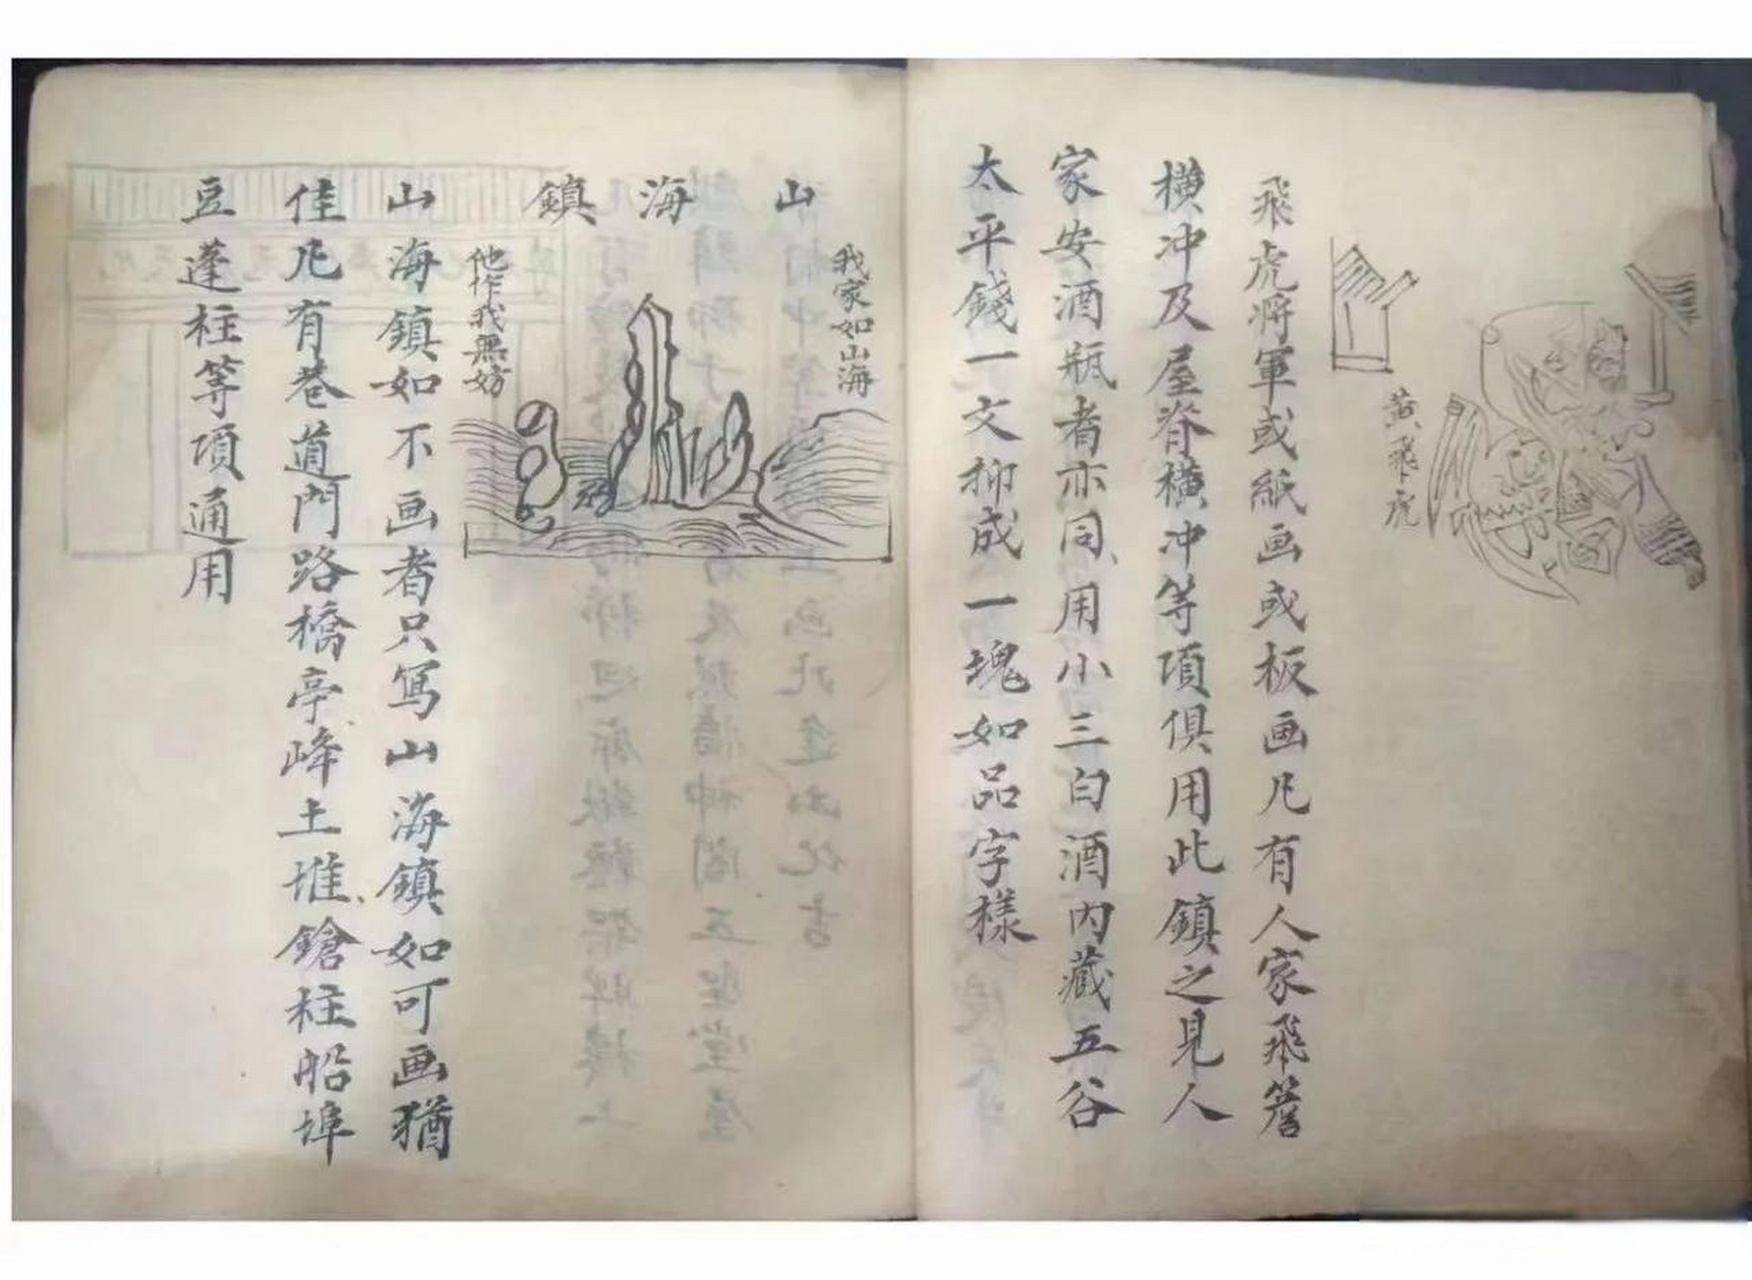 黃飛虎
飛虎將軍或紙画或板画凡有人家飛簷
横冲及屋脊横冲等項俱用此鎮之見人
家安酒瓶者亦同用小三白酒內藏五谷
太平錢一文抑成一塊如品字樣
山海鎮
我家如山海
他作我無妨
山海鎮如不画者只写山海鎮如可画猶
佳凡有巷道門路橋亭峰土堆鎗柱船埠
豆蓬柱等項通用